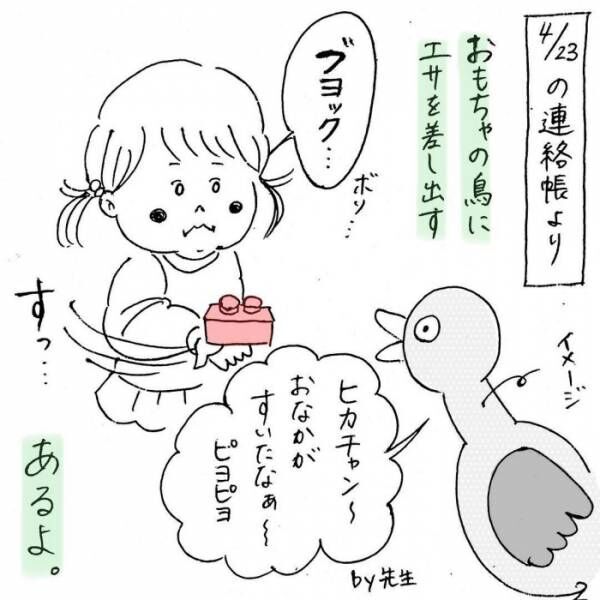 4/23の連絡帳より
おもちゃの鳥に
エサを差し出す
ブヨック…
ボソ…
すっ…
イメージ
ヒカチャン〜
おなかが
すいたなぁ〜
ピヨピヨ
by先生
あるよ。